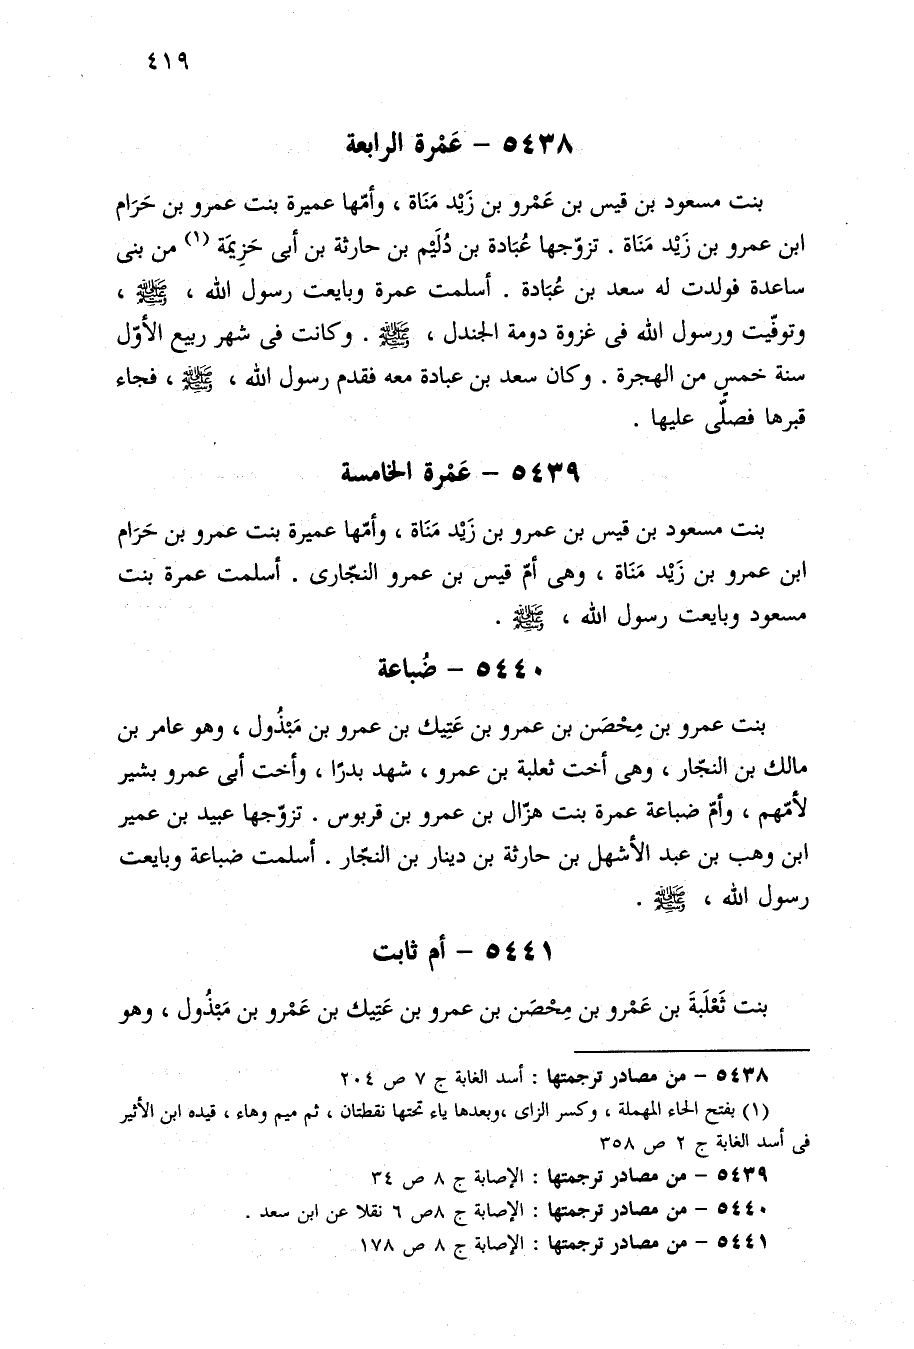 ٤١٩
٥٤٣٨ – عَمْرة الرابعة
بنت مسعود بن قيس بن عَمْرو بن زَيْد مَنَاة ، وأمّها عميرة بنت عمرو بن حَرَام
ابن عمرو بن زَيْد مَنَاة . تزوّجها عُبَادة بن دُلَيْم بن حارثة بن أبى حَزِيمَة (١) من بنى
ساعدة فولدت له سعد بن عُبَادة . أسلمت عمرة وبايعت رسول الله ، ﷺ ،
وتوفّيت ورسول الله فى غزوة دومة الجندل ، ﷺ . وكانت فى شهر ربيع الأوّل
سنة خمسٍ من الهجرة . وكان سعد بن عبادة معه فقدم رسول الله ، ﷺ ، فجاء
قبرها فصلَّى عليها .
٥٤٣٩ – عَمْرة الخامسة
بنت مسعود بن قيس بن عمرو بن زَيْد مَنَاة ، وأمّها عميرة بنت عمرو بن حَرَام
ابن عمرو بن زَيْد مَنَاة ، وهى أمّ قيس بن عمرو النجّارى . أسلمت عمرة بنت
مسعود وبايعت رسول الله ، ﷺ .
٥٤٤٠ – ضُباعة
بنت عمرو بن مِحْصَن بن عمرو بن عَتِيك بن عمرو بن مَبْذُول ، وهو عامر بن
مالك بن النجّار ، وهى أخت ثعلبة بن عمرو ، شهد بدرًا ، وأخت أبى عمرو بشير
لأمّهم ، وأمّ ضباعة عمرة بنت هزّال بن عمرو بن قربوس . تزوّجها عبيد بن عمير
ابن وهب بن عبد الأشهل بن حارثة بن دينار بن النجّار . أسلمت ضباعة وبايعت
رسول الله ، ﷺ .
٥٤٤١ – أم ثابت
بنت ثَعْلَبَةَ بن عَمْرو بن مِحْصَن بن عمرو بن عَتِيك بن عَمْرو بن مَبْذُول ، وهو
٥٤٣٨ – من مصادر ترجمتها : أسد الغابة ج ٧ ص ٢٠٤
(١) بفتح الحاء المهملة ، وكسر الزاى ،وبعدها ياء تحتها نقطتان ، ثم ميم وهاء ، قيده ابن الأثير
فى أسد الغابة ج ٢ ص ٣٥٨
٥٤٣٩ – من مصادر ترجمتها : الإصابة ج ٨ ص ٣٤
٥٤٤٠ – من مصادر ترجمتها : الإصابة ج ٨ص ٦ نقلا عن ابن سعد .
٥٤٤١ – من مصادر ترجمتها : الإصابة ج ٨ ص ١٧٨